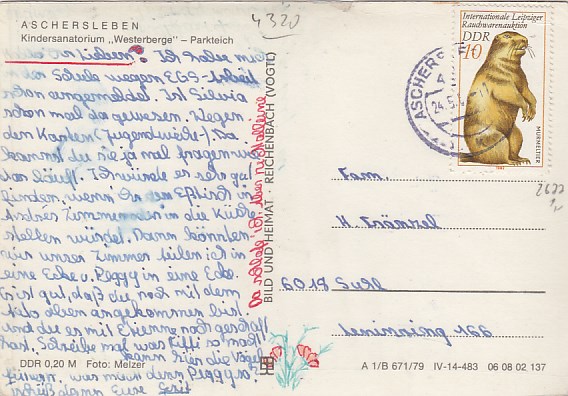 4320
ASCHERSLEBEN
Kindersanatorium „Westerberge" – Parkteich
Ihr Lieben! Ich habe mich
in der Schule wegen EGS-Arbeit
schon angemeldet. Ist Silvia
schon mal da gewesen. Wegen
den Karten (Jugendweihe-). Da
kannst du sie ja mal fragen was
das läuft. Ich würde es sehr gut
finden, wenn du den Eßtisch in
Andrés Zimmer in die Küche
stellen würdet. Dann könnten
wir unser Zimmer teilen ich in
eine Ecke u. Peggy in eine Ecke.
Es ist gut, daß du noch mit dem
Kilo oben angekommen bist
und du es mit Etienne noch geschafft
hast. Schreibe mal was Fiffi so macht
kann hier die Vögel
füttern. was macht denn Peggy so?
Tschüß dann Eure Gerit
Da schlafe ich aber nicht alleine
DDR 0,20 M Foto: Melzer
BILD UND HEIMAT · REICHENBACH (VOGTL)
Internationale Leipziger
Rauchwarenauktion
DDR
10
MURMELTIER
1982
ASCHERSLE
24.5.
2677
Fam.
H. Kränzel
6018 Suhl
Leninring 166
A 1/B 671/79 IV-14-483 06 08 02 137